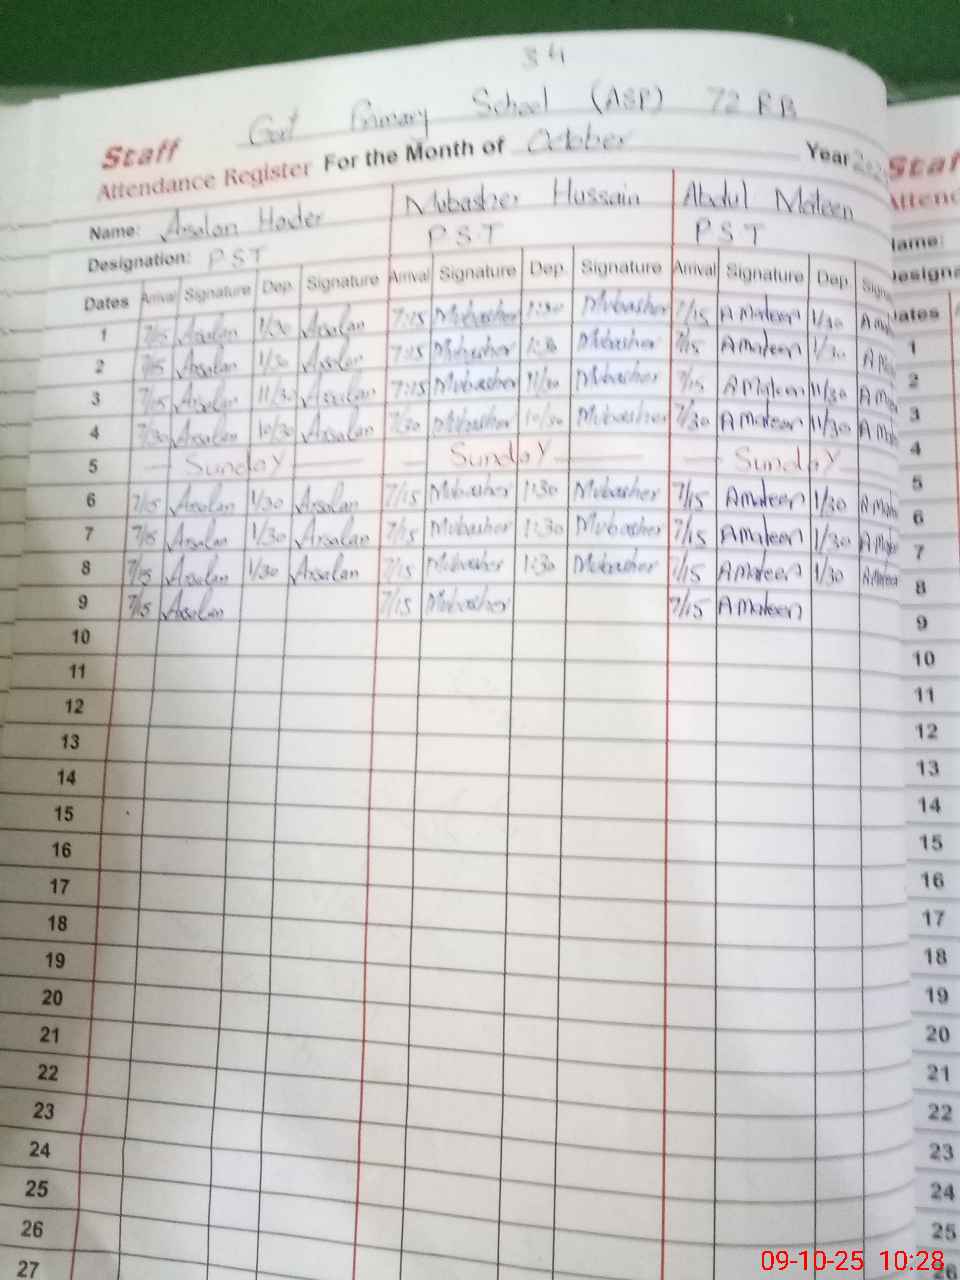 34
Govt Primary School (ASP) 72 RB
Staff
Attendance Register For the Month of October Year
Name: Arsalan Haider Mubasher Hussain Abdul Mateen
Designation: PST PST PST
Dates Arrival Signature Dep. Signature Arrival Signature Dep. Signature Arrival Signature Dep.
1 7/15 Arsalan 1/30 Arsalan 7:15 Mubasher 1:30 Mubasher 7/15 AMateen 1/30
2 7/15 Arsalan 1/30 Arsalan 7:15 Mubasher 1:30 Mubasher 7/15 AMateen 1/30
3 7/15 Arsalan 11/30 Arsalan 7:15 Mubasher 11/30 Mubasher 7/15 AMateen 11/30
4 7/30 Arsalan 10/30 Arsalan 7/30 Mubasher 10/30 Mubasher 7/30 AMateen 11/30
5 Sunday Sunday Sunday
6 7/15 Arsalan 1/30 Arsalan 7/15 Mubasher 1:30 Mubasher 7/15 AMateen 1/30
7 7/15 Arsalan 1/30 Arsalan 7/15 Mubasher 1:30 Mubasher 7/15 AMateen 1/30
8 7/15 Arsalan 1/30 Arsalan 7/15 Mubasher 1:30 Mubasher 7/15 AMateen 1/30 AMateen
9 7/15 Arsalan 7/15 Mubasher 7/15 AMateen
10
11
12
13
14
15
16
17
18
19
20
21
22
23
24
25
26
27
1
2
3
4
5
6
7
8
9
10
11
12
13
14
15
16
17
18
19
20
21
22
23
24
25
26
09-10-25 10:28